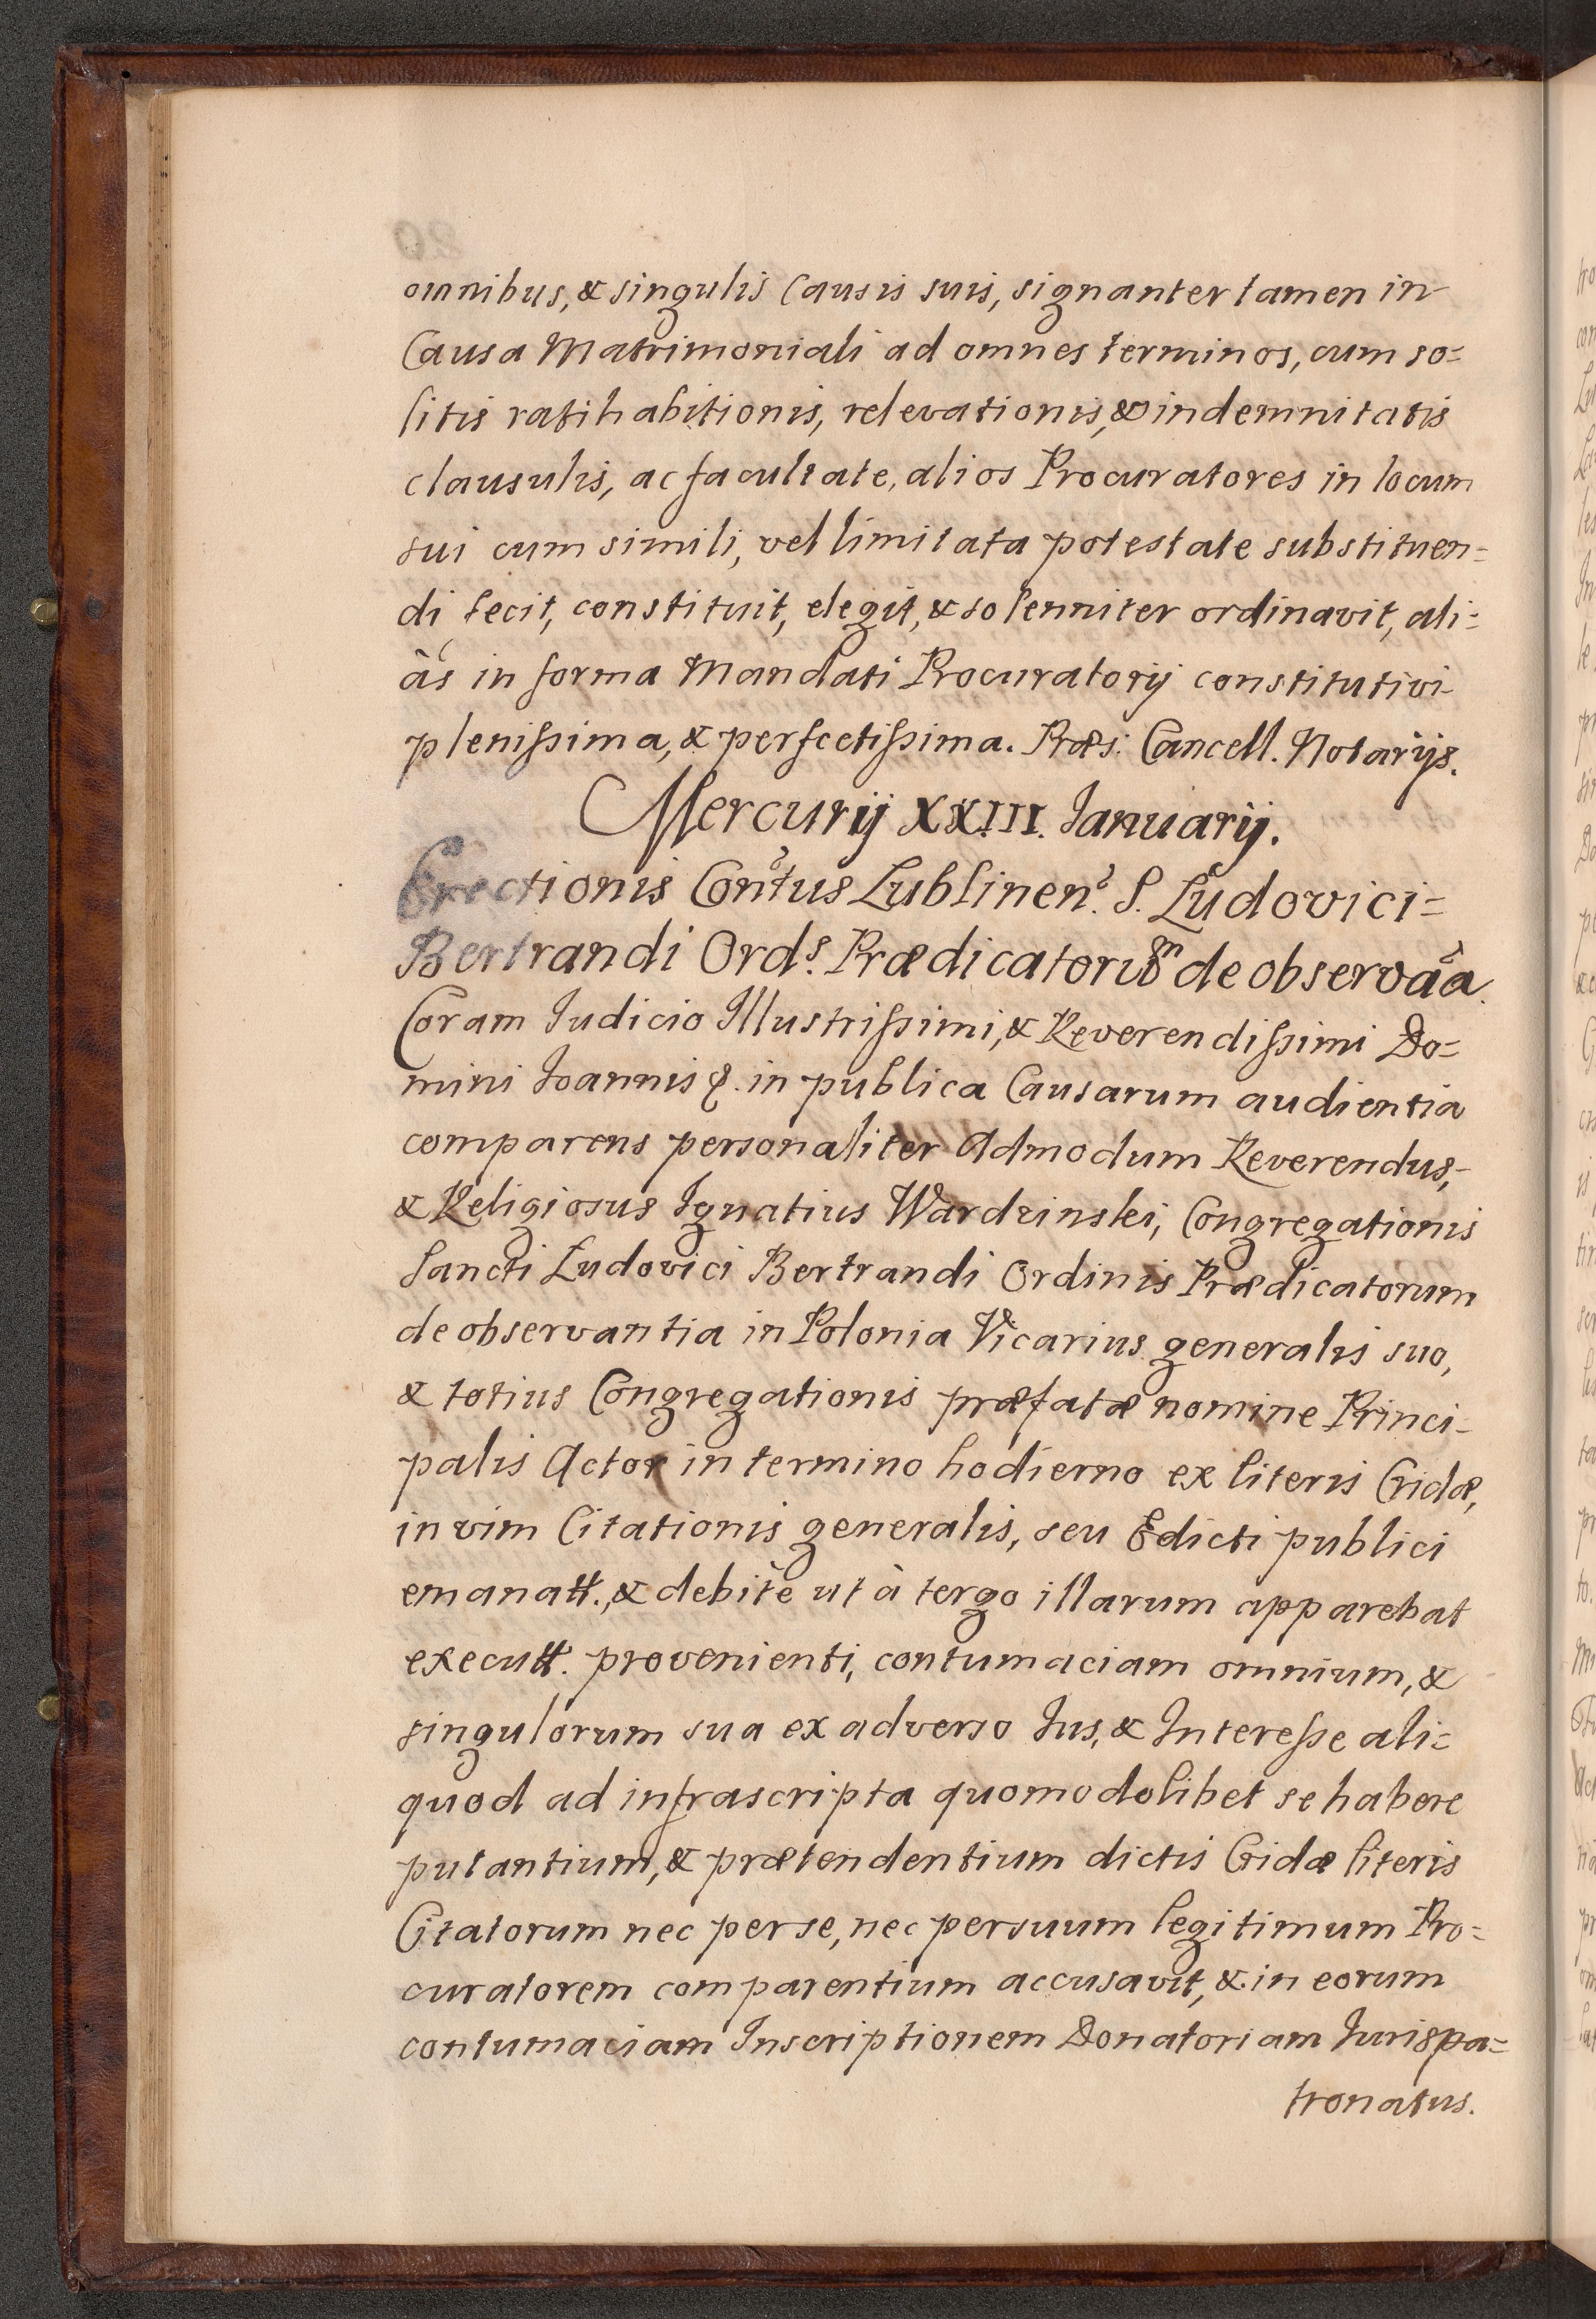 omnibus, & singulis Causis suis, signanter tamen in
Causa Matrimoniali ad omnes terminos, cum so=
litis ratihabitionis, relevationis, & indemnitatis
clausulis, ac facultate, alios Procuratores in locum
sui cum simili, vel limitata potestate substituen=
di fecit, constituit, elegit, & solenniter ordinavit, ali=
às in forma Mandati Procuratorij constitutivi
plenissima, & perfectissima. Præs: Cancell. Notarijs.
Mercurij XXIII. Ianuarij.
Erectionis Contus Lublinen. S. Ludovici=
Bertrandi Ords. Prædicatorum de observaa.
Coram Iudicio Illustrissimi, & Reverendissimi Do=
mini Ioannis &. in publica Causarum audientia
comparens personaliter Admodum Reverendus,
& Religiosus Ignatius Wardzinski, Congregationis
Sancti Ludovici Bertrandi Ordinis Prædicatorum
de observantia in Polonia Vicarius generalis suo,
& totius Congregationis præfatæ nomine Princi-
palis Actor in termino hodierno ex literis Cridæ,
in vim Citationis generalis, seu Edicti publici
emanatt., & debitè ut à tergo illarum apparebat
executt. provenienti, contumaciam omnium, &
singulorum sua ex adverso Ius, & Interesse ali=
quod ad infrascripta quomodolibet se habere
putantium, & prætendentium dictis Cridæ literis
Citatorum nec per se, nec per suum legitimum Pro=
curatorem comparentium accusavit, & in eorum
contumaciam Inscriptionem Donatoriam Iurispa=
tronatus.